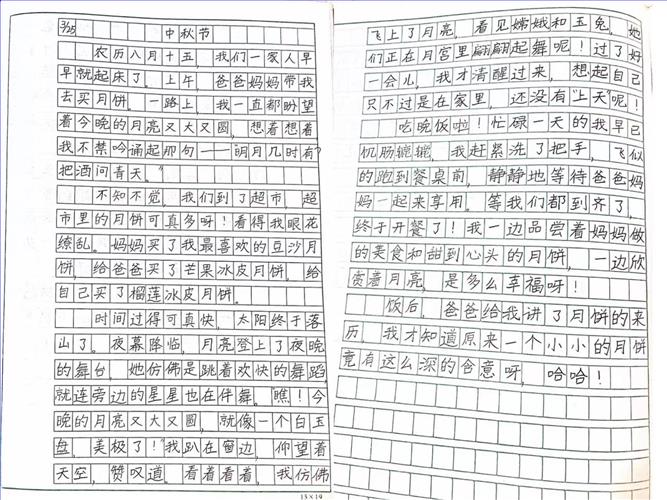 3/25 中秋节
农历八月十五，我们一家人早
早就起床了。上午，爸爸妈妈带我
去买月饼。一路上，我一直都盼望
着今晚的月亮又大又圆，想着想着
我不禁吟诵起那句——“明月几时有？
把酒问青天。”
不知不觉，我们到了超市，超
市里的月饼可真多呀！看得我眼花
缭乱。妈妈买了我最喜欢的豆沙月
饼，给爸爸买了芒果冰皮月饼。给
自己买了榴莲冰皮月饼。
时间过得可真快，太阳终于落
山了。夜幕降临，月亮登上了夜晚
的舞台，她仿佛是跳着欢快的舞蹈，
就连旁边的星星也在伴舞。“瞧！今
晚的月亮又大又圆，就像一个白玉
盘，美极了！”我趴在窗边，仰望着
天空，赞叹道。看着看着，我仿佛
15×19
飞上了月亮，看见嫦娥和玉兔，她
们正在月宫里翩翩起舞呢！过了好
一会儿，我才清醒过来，想起自己
只不过是在家里，还没有“上天”呢！
吃晚饭啦！忙碌一天的我早已
饥肠辘辘，我赶紧洗了把手，飞似
的跑到餐桌前，静静地等待爸爸妈
妈一起来享用。等我们都到齐了，
终于开餐了！我一边品尝着妈妈做
的美食和甜到心头的月饼，一边欣
赏着月亮，是多么幸福呀！
饭后，爸爸给我讲了月饼的来
历，我才知道原来一个小小的月饼
竟有这么深的含意呀，哈哈！